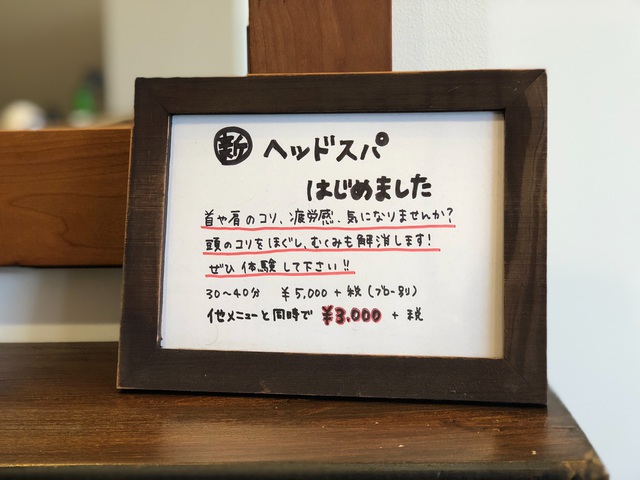 新 ヘッドスパ
はじめました
首や肩のコリ、疲労感、気になりませんか?
頭のコリをほぐし、むくみも解消します!
ぜひ体験して下さい!!
30〜40分 ¥5,000+税(ブロー別)
他メニューと同時で ¥3,000+税